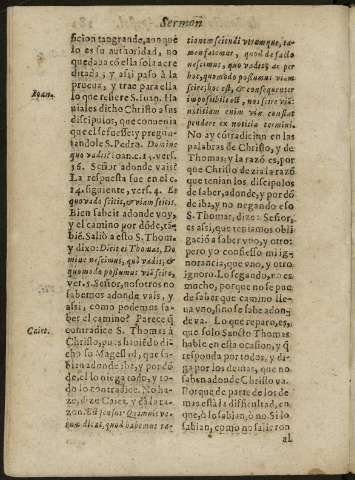 Sermon
ficion tan grande, aunque
lo es su authoridad, no
quedaua cõ ella sola acre
ditada; y assi passò à la
prueua, y trae para ella
lo que refiere S. Iuan. Ha
Ioan.
uiales dicho Christo a sus
discipulos, que conuenia
que el se fuesse: y pregun-
tandole S. Pedro. Domine
quo vadis? ioan. c. 13. vers.
36. Señor adonde vais?
La respuesta fue en el c.
14. siguiente, vers. 4. Et
quo vado scitis, & viam scitis.
Bien sabeis adonde voy,
y el camino por dõde, tã-
biẽ. Saliò a esto S. Thom.
y dixo: Dicit ei Thomas, Do-
mine nescimus, quò vadis; &
quomodo possumus viã scire,
ver. 5. Señor, nosotros no
sabemos adonde vais, y
assi, como podemos sa-
ber el camino? Parece q̃
Caiet.
contradice S. Thomas à
Christo, pues hauiẽdo di-
cho su Magestad, que sa-
bian adonde iba, y por dõ
de, el lo niega todo, y to-
do lo contradice. No ha-
ze, dize Caiet. y dà la ra-
zon. Est sensus: Quamuis ve-
rum dicas, quod habemus no-
titiam sciendi utrumque, ta-
men fatemur, quod de facto
nescimus, quò vadis; ac per
hoc, quomodo possumus viam
scire; hoc est, & consequenter
impossibile est, nos scire viã:
notitiam enim viæ constat
pendere ex notitia termini.
No ay contradicion en las
palabras de Christo, y de
Thomas; y la razõ es, por
que Christo dezia la razõ
que tenian los discipulos
de saber, adonde, y por dõ
de iba, y no negando eso
S. Thomas, dize: Señor,
es assi, que tenemos obli-
gaciõ a saber vno, y otro:
pero yo confiesso mi ig-
norancia, que vno, y otro
ignoro. Lo segundo, no es
mucho, porque no se pue
de saber que camino lle-
ua vno, sino se sabe adon-
de va. Lo que reparo, es,
que solo Sancto Thomas
hable en esta ocasion, y q̃
responda por todos, y di-
ga por los demas, que no
saben adonde Christo va.
Porque de parte de los de
mas està la dificultad, en
que, ò lo sabian, ò no. Si lo
sabian, como no salieron
al